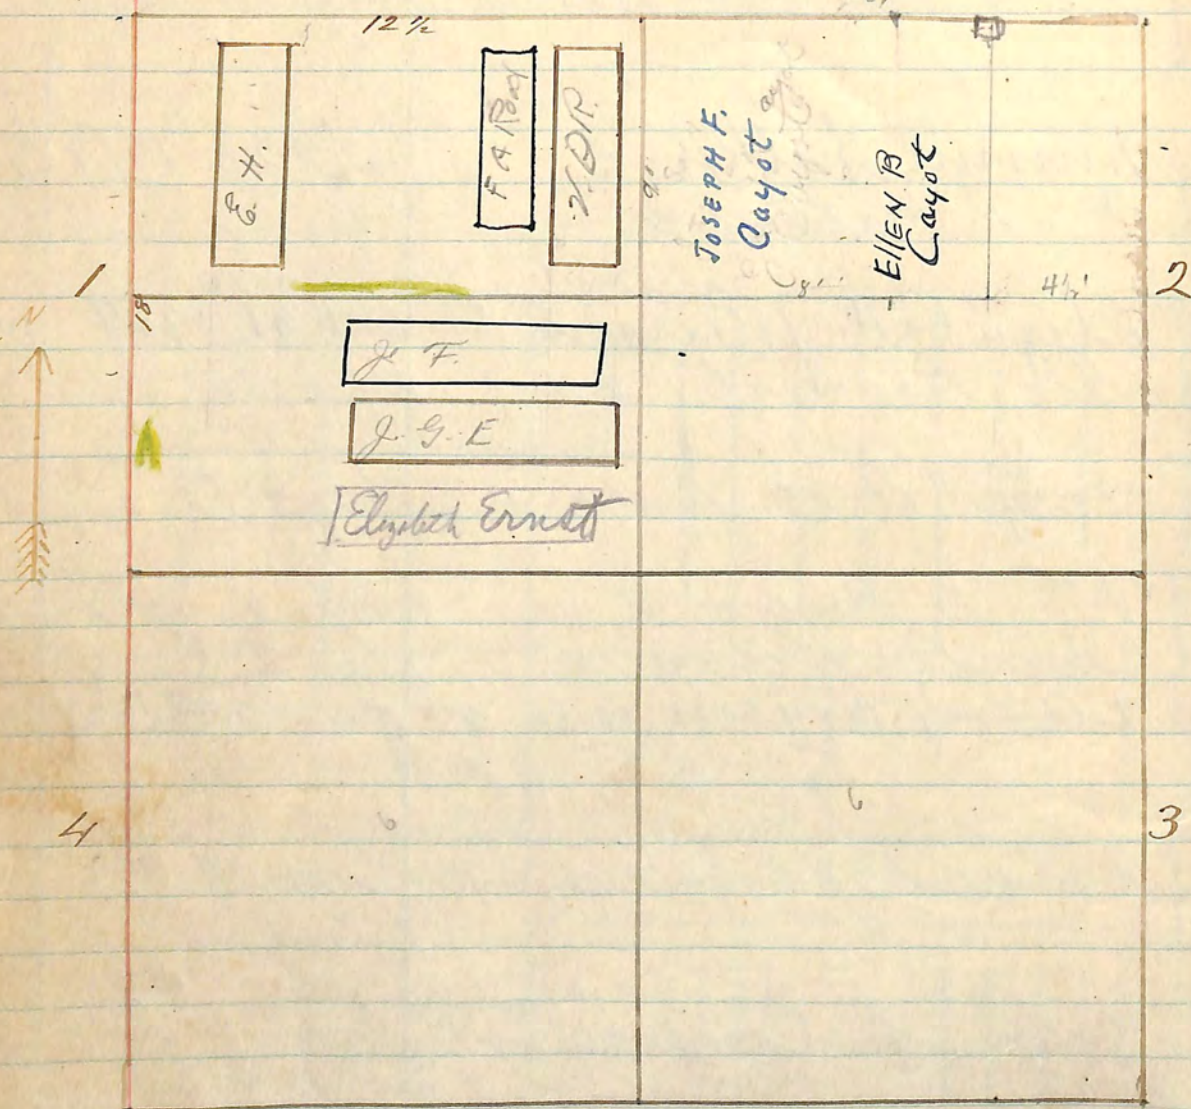 12 ½
E. H.
F A
JOSEPH F.
Cayot
EllEN B
Cayot
9'
8'
4½'
1
2
18'
N
J. F.
J. G. E
Elizabeth Ernst
4
6
6
3